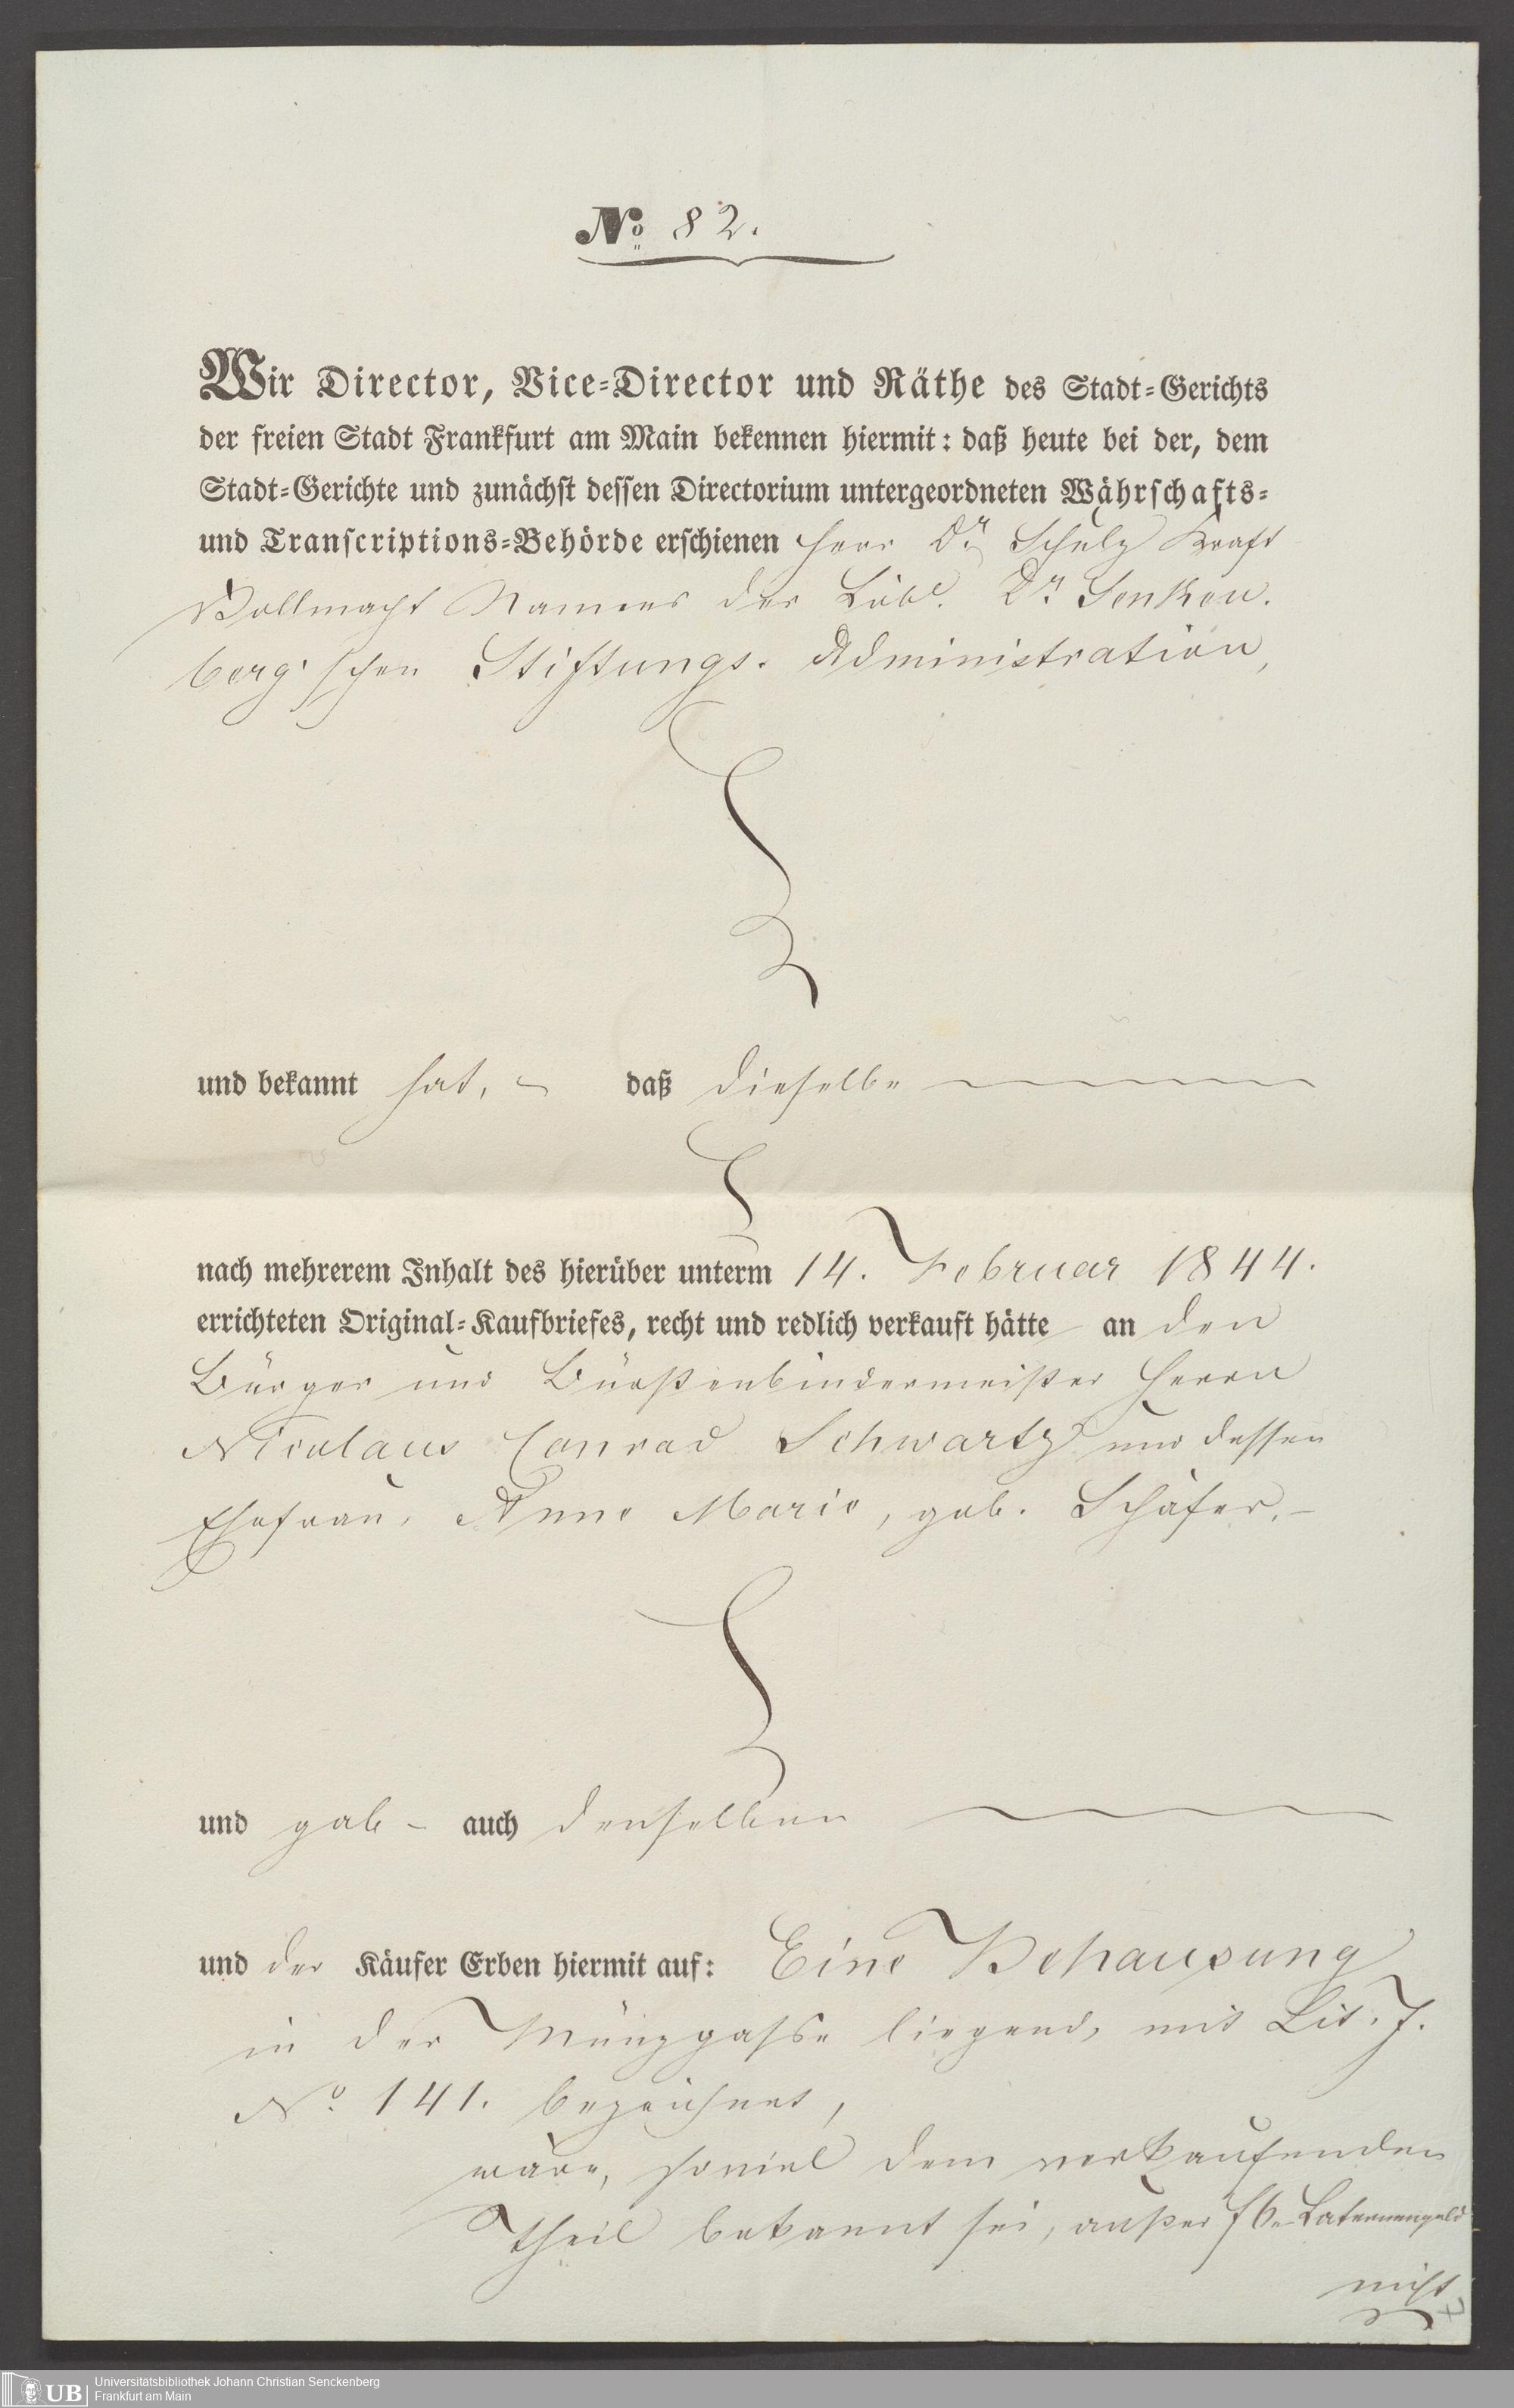 No 82.
Wir Director, Vice-Director und Räthe des Stadt-Gerichts
der freien Stadt Frankfurt am Main bekennen hiermit: daß heute bei der, dem
Stadt-Gerichte und zunächst dessen Directorium untergeordneten Währschafts-
und Transcriptions-Behörde erschienen Herr Dr. Schulz Kraft
Vollmacht Namens der Löbl. Dr. Senken-
berg'schen Stiftungs-Administration,
und bekannt hat, daß dieselbe
nach mehrerem Inhalt des hierüber unterm 14. Februar 1844.
errichteten Original-Kaufbriefes, recht und redlich verkauft hätte an den
Bürger und Bürstenbindermeister Herrn
Nicolaus Conrad Schwartz und dessen
Ehefrau, Anne Marie, geb. Schäfer.
und gab auch denselben
und der Käufer Erben hiermit auf: Eine Behausung
in der Münzgasse liegend, mit Lit. J.
No. 141. bezeichnet,
wäre, soviel dem verkaufenden
Theil bekannt sei, außer f 6 Laternengeld
nicht
UB Universitätsbibliothek Johann Christian Senckenberg
Frankfurt am Main